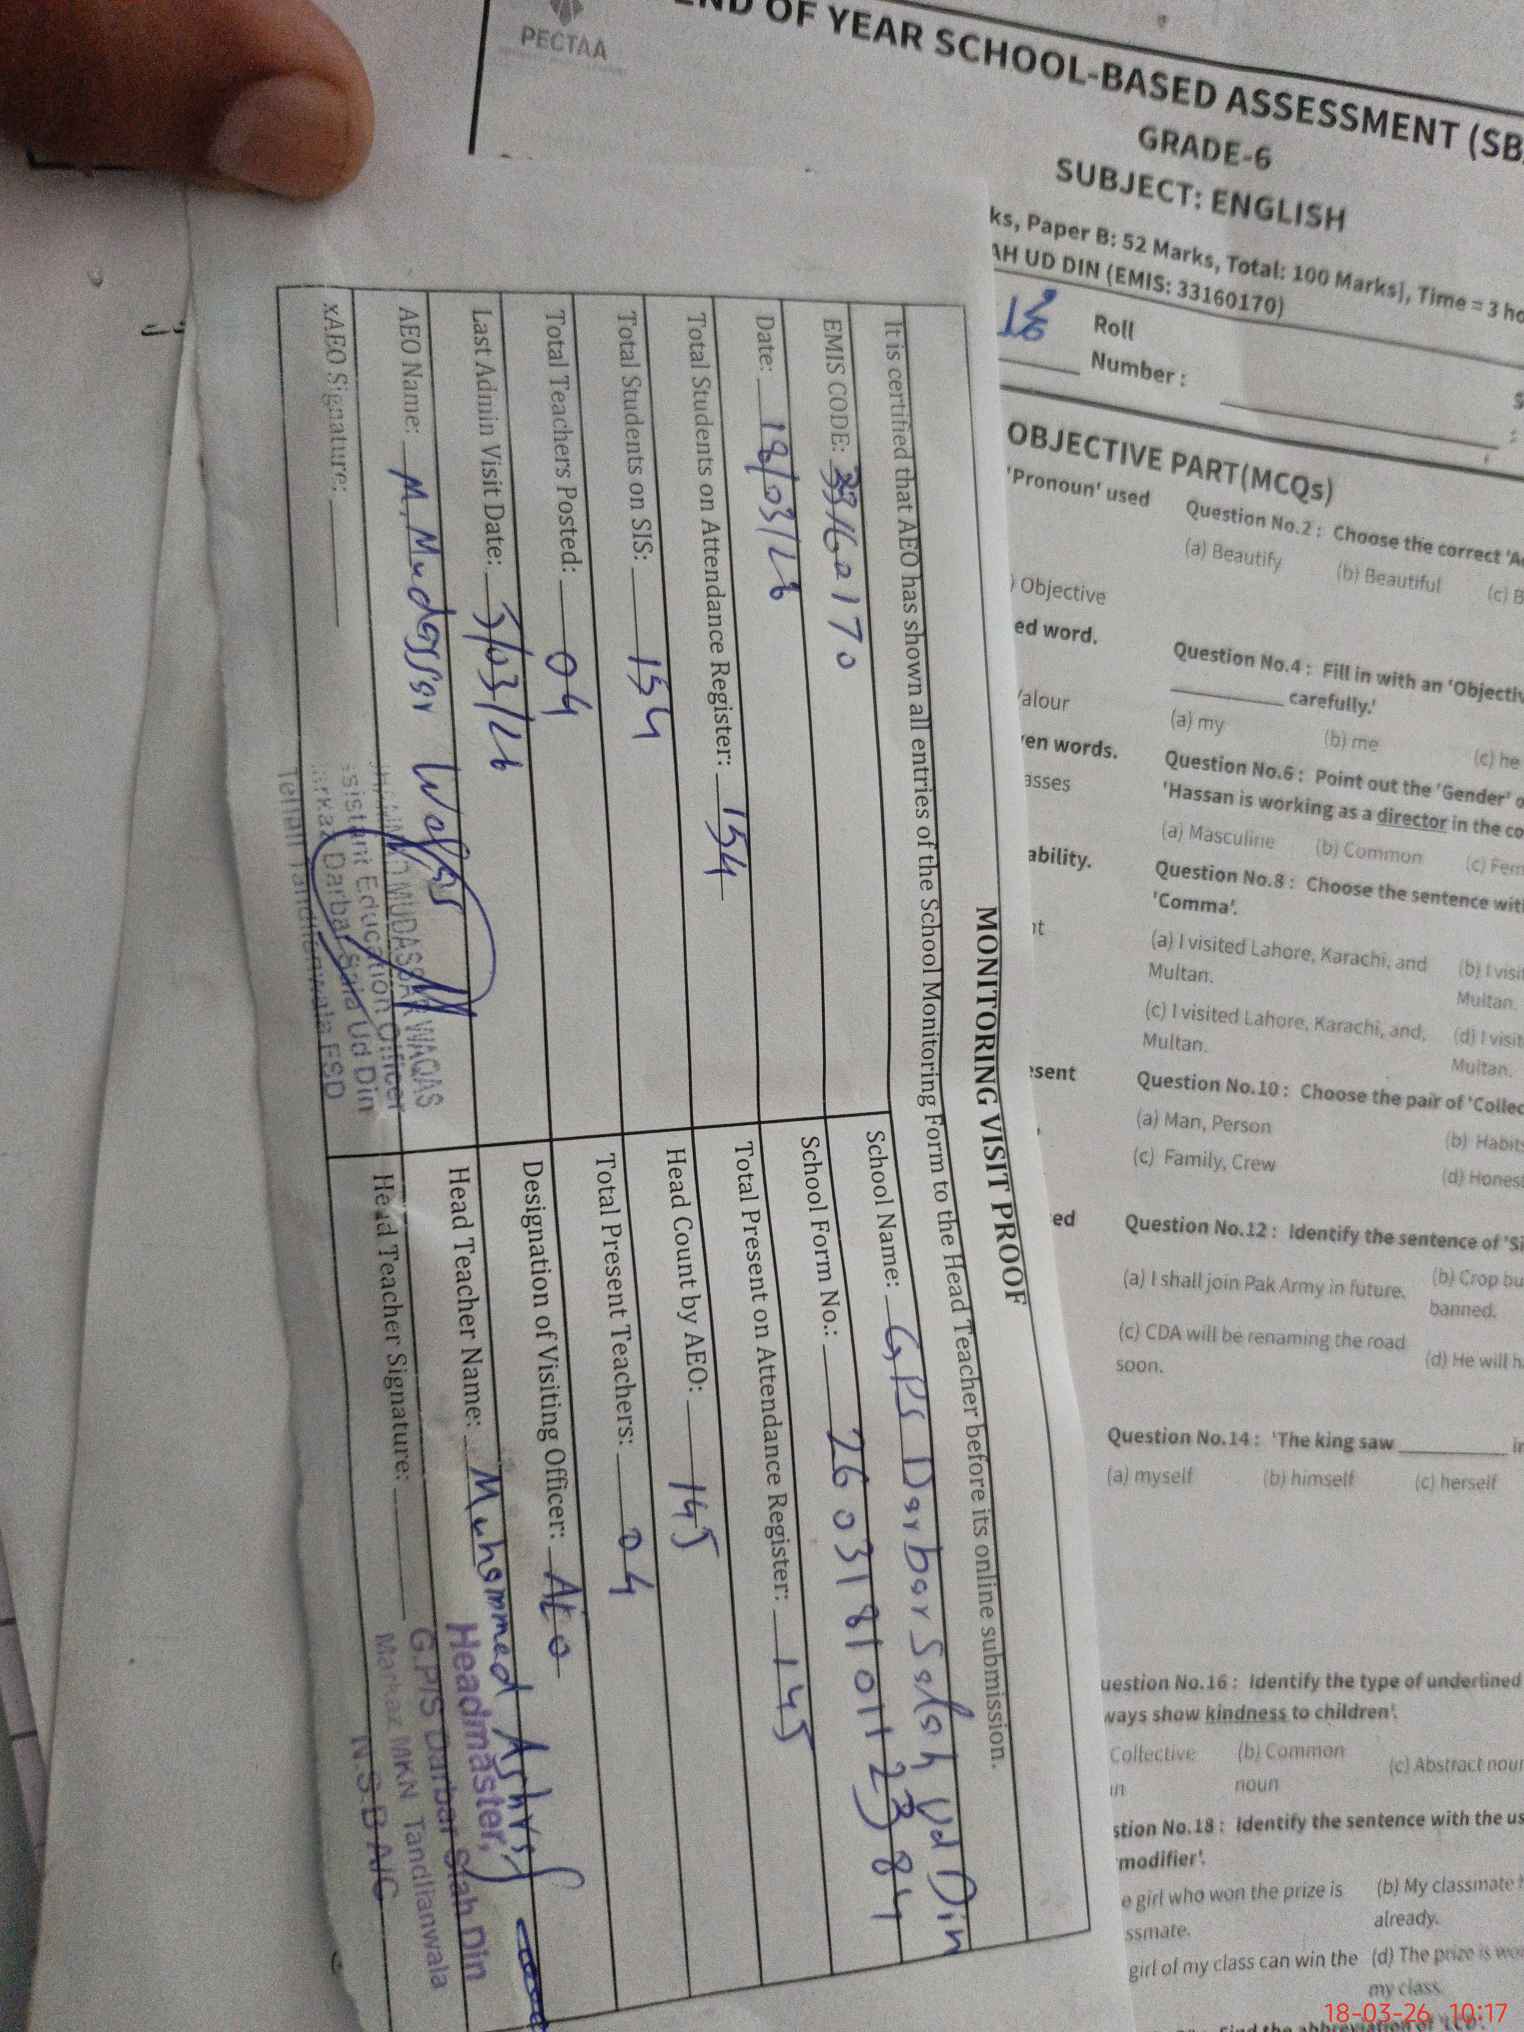 PECTAA
END OF YEAR SCHOOL-BASED ASSESSMENT (SB
GRADE-6
SUBJECT: ENGLISH
ks, Paper B: 52 Marks, Total: 100 Marks), Time = 3 ho
AH UD DIN (EMIS: 33160170)
Roll
Number :
OBJECTIVE PART(MCQs)
'Pronoun' used
Question No.2 : Choose the correct 'A
(a) Beautify (b) Beautiful (c) B
Objective
ed word.
Question No.4 : Fill in with an 'Objectiv
carefully.'
(a) my (b) me (c) he
alour
en words.
Question No.6 : Point out the 'Gender' o
asses
'Hassan is working as a director in the co
(a) Masculine (b) Common (c) Fem
ability.
Question No.8 : Choose the sentence wit
'Comma'.
(a) I visited Lahore, Karachi, and (b) I visit
Multan. Multan.
(c) I visited Lahore, Karachi, and, (d) I visit
Multan. Multan.
esent
Question No.10 : Choose the pair of 'Collec
(a) Man, Person (b) Habits
(c) Family, Crew (d) Honest
ed
Question No.12 : Identify the sentence of 'Si
(a) I shall join Pak Army in future. (b) Crop bu
banned.
(c) CDA will be renaming the road (d) He will h
soon.
Question No.14 : 'The king saw in
(a) myself (b) himself (c) herself
uestion No.16 : Identify the type of underlined
ways show kindness to children'.
Collective (b) Common (c) Abstract noun
noun
stion No.18 : Identify the sentence with the us
modifier'.
e girl who won the prize is (b) My classmate
ssmate. already.
girl of my class can win the (d) The prize is wo
my class.
MONITORING VISIT PROOF
It is certified that AEO has shown all entries of the School Monitoring Form to the Head Teacher before its online submission.
EMIS CODE: 33160170 School Name: GPS Darbar Salah Ud Din
Date: 18/03/26 School Form No.: 26031810112384
Total Students on Attendance Register: 154 Total Present on Attendance Register: 145
Total Students on SIS: 154 Head Count by AEO: 145
Total Teachers Posted: 04 Total Present Teachers: 04
Last Admin Visit Date: 5/03/26 Designation of Visiting Officer: AEO
AEO Name: M. Mudassar Waqas Head Teacher Name: Muhammad Ashraf
xAEO Signature: Head Teacher Signature:
MUDASSAR WAQAS
Assistant Education Officer
Markaz Darbar Sala Ud Din
Tehsil Tandlianwala FSD
Headmaster,
G.P/S Darbar Slah Din
Markaz MKN Tandlianwala
18-03-26 10:17